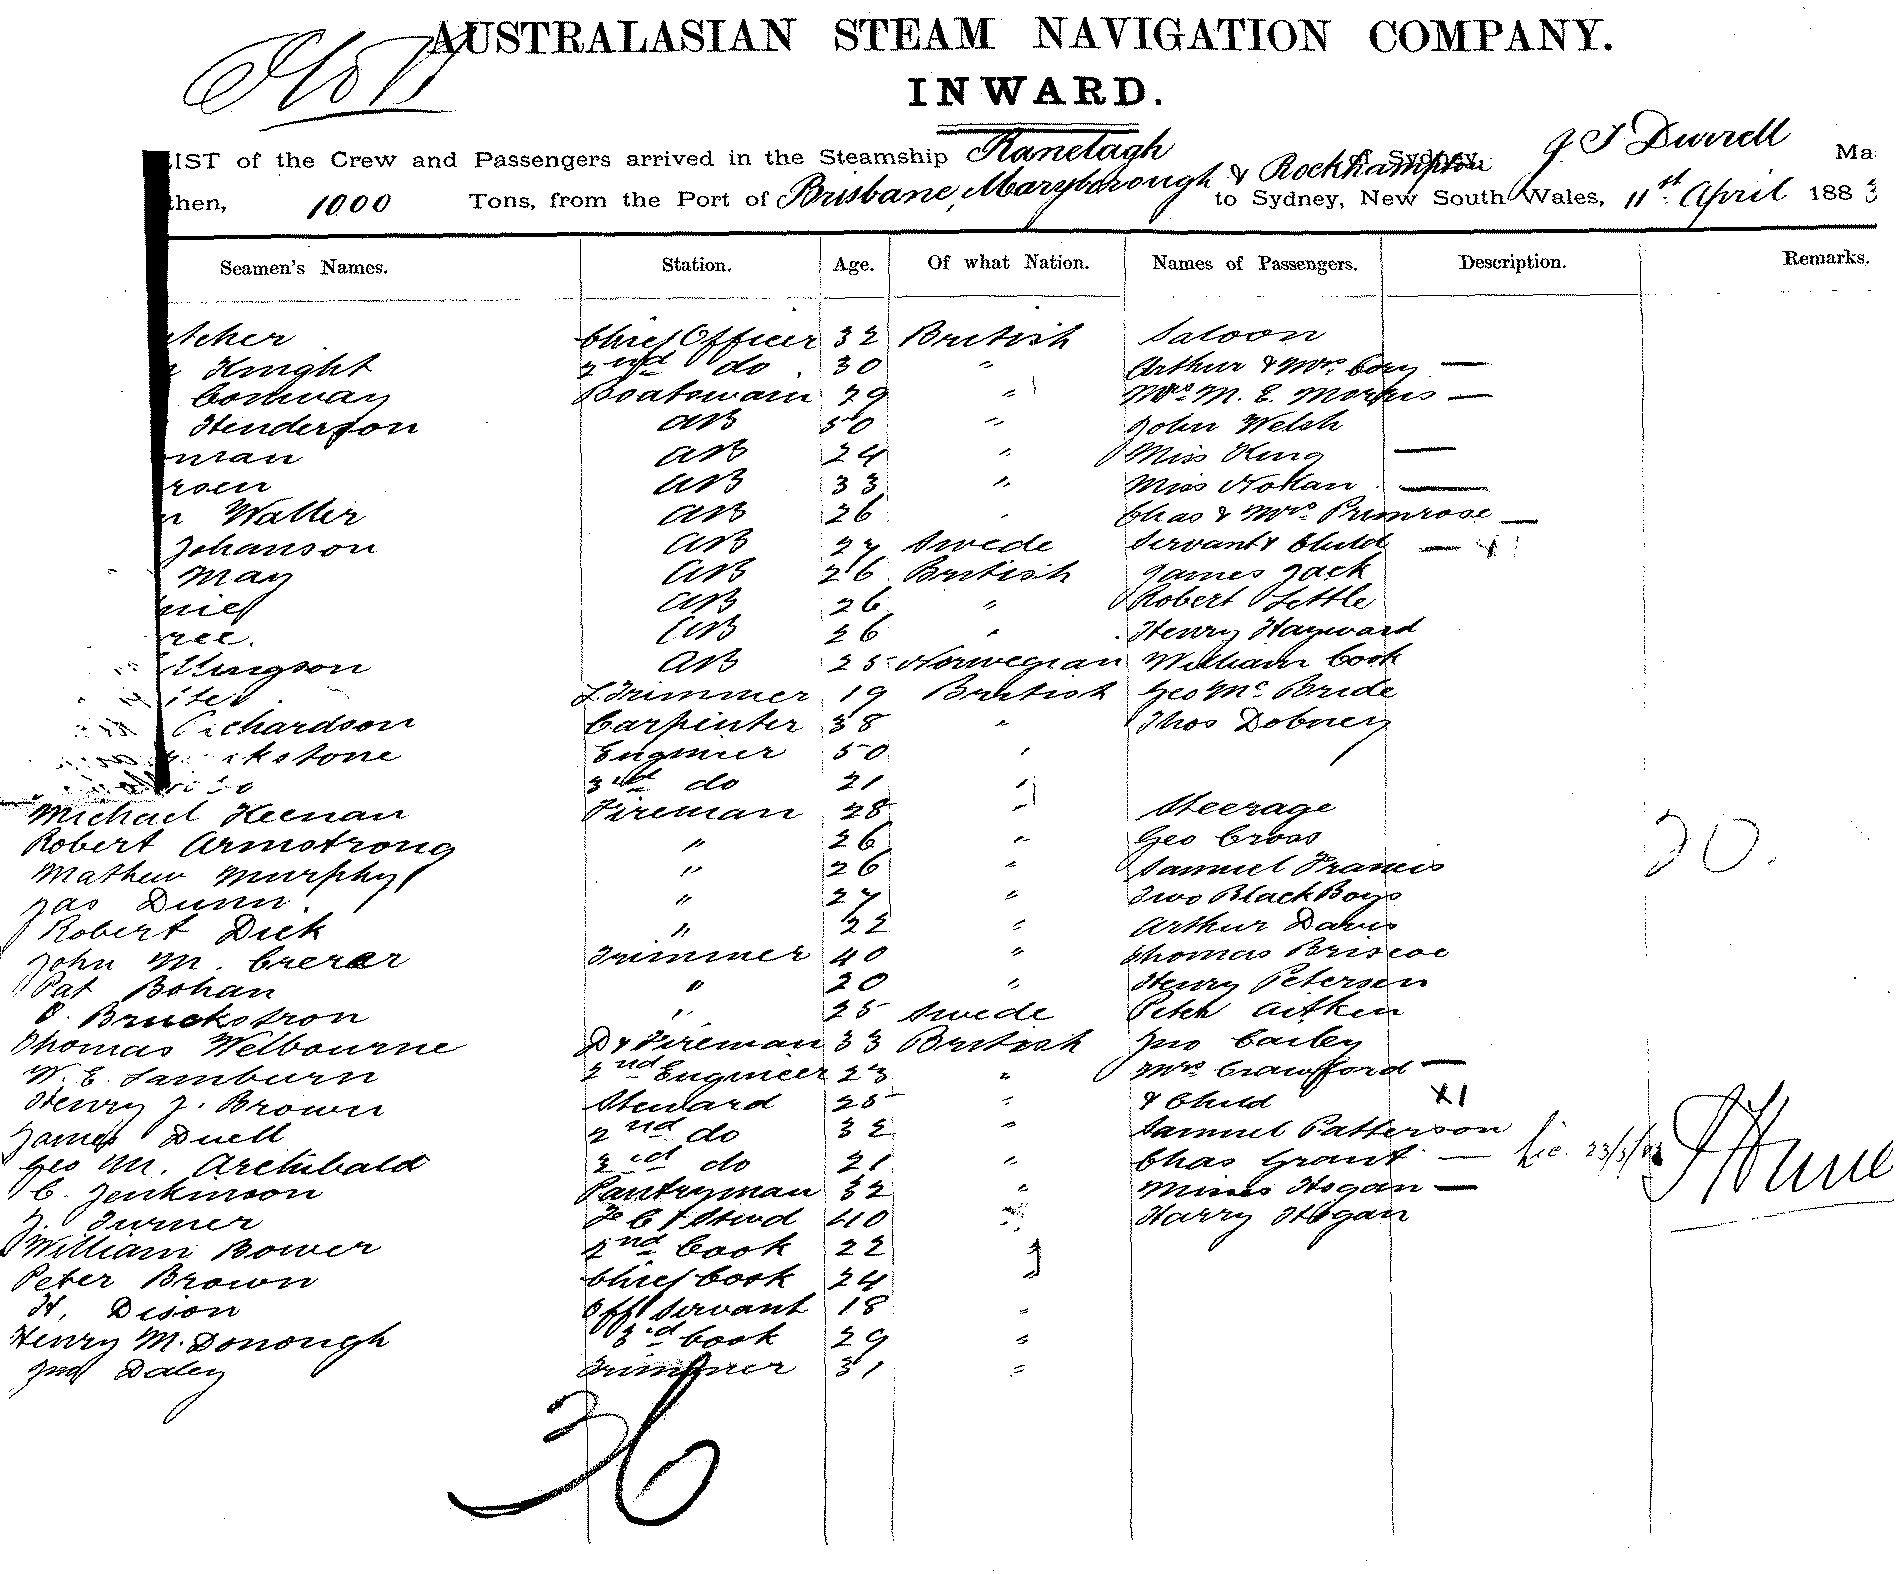 AUSTRALASIAN STEAM NAVIGATION COMPANY.
INWARD.
IST of the Crew and Passengers arrived in the Steamship Ranelagh of Sydney, J S Durrell Ma
then, 1000 Tons, from the Port of Brisbane, Maryborough & Rockhampton to Sydney, New South Wales, 11st April 188
Seamen's Names. Station. Age. Of what Nation. Names of Passengers. Description. Remarks.
tcher Chief Officer 32 British Saloon
Knight 2nd do 30 " Arthur & Mrs Cory —
Conway Boatswain 29 " Mrs M. E. Morris —
Henderson AB 50 " John Welsh
man AB 24 " Miss King —
rsen AB 33 " Miss Nolan —
n Walter AB 26 " Chas & Mrs Primrose —
Johanson AB 27 Swede Servant & Child —
May AB 26 British James Jack
niel AB 26 " Robert Little
ree. AB 26 " Henry Hayward
AB 25 Norwegian William Cook
ite Trimmer 19 British Geo Mc Bride
Richardson Carpenter 38 " Thos Dobney
kstone Engineer 50 "
3rd do 21 "
Michael Keenan Fireman 28 " Steerage
Robert Armstrong " 26 " Geo Cross
Mathew Murphy " 26 " Samuel Francis
Jas Dunn " 27 " Two Black Boys
Robert Dick " 22 " Arthur Davis
John M. Crerar Trimmer 40 " Thomas Briscoe
Pat Bohan " 20 " Henry Petersen
O. Bruckstron " 25 Swede Peter Aitken
Thomas Welbourne Dy Fireman 33 British Jno Cailey
W. E. Lamburn 2nd Engineer 23 " Mrs Crawford —
Henry J. Brown Steward 25 " & Child X1
James Duell 2nd do 32 " Samuel Patterson
Geo M. Archibald 3rd do 21 " Chas Grant —
C. Jenkinson Pantryman 32 " Misses Hogan —
J. Turner F C Stwd 40 " Harry Hogan
William Bower 2nd Cook 22
Peter Brown Chief Cook 24
H. Dison Off Servant 18 "
Henry M. Donough 3rd Cook 29 "
Jno Daley Trimmer 31 "
36